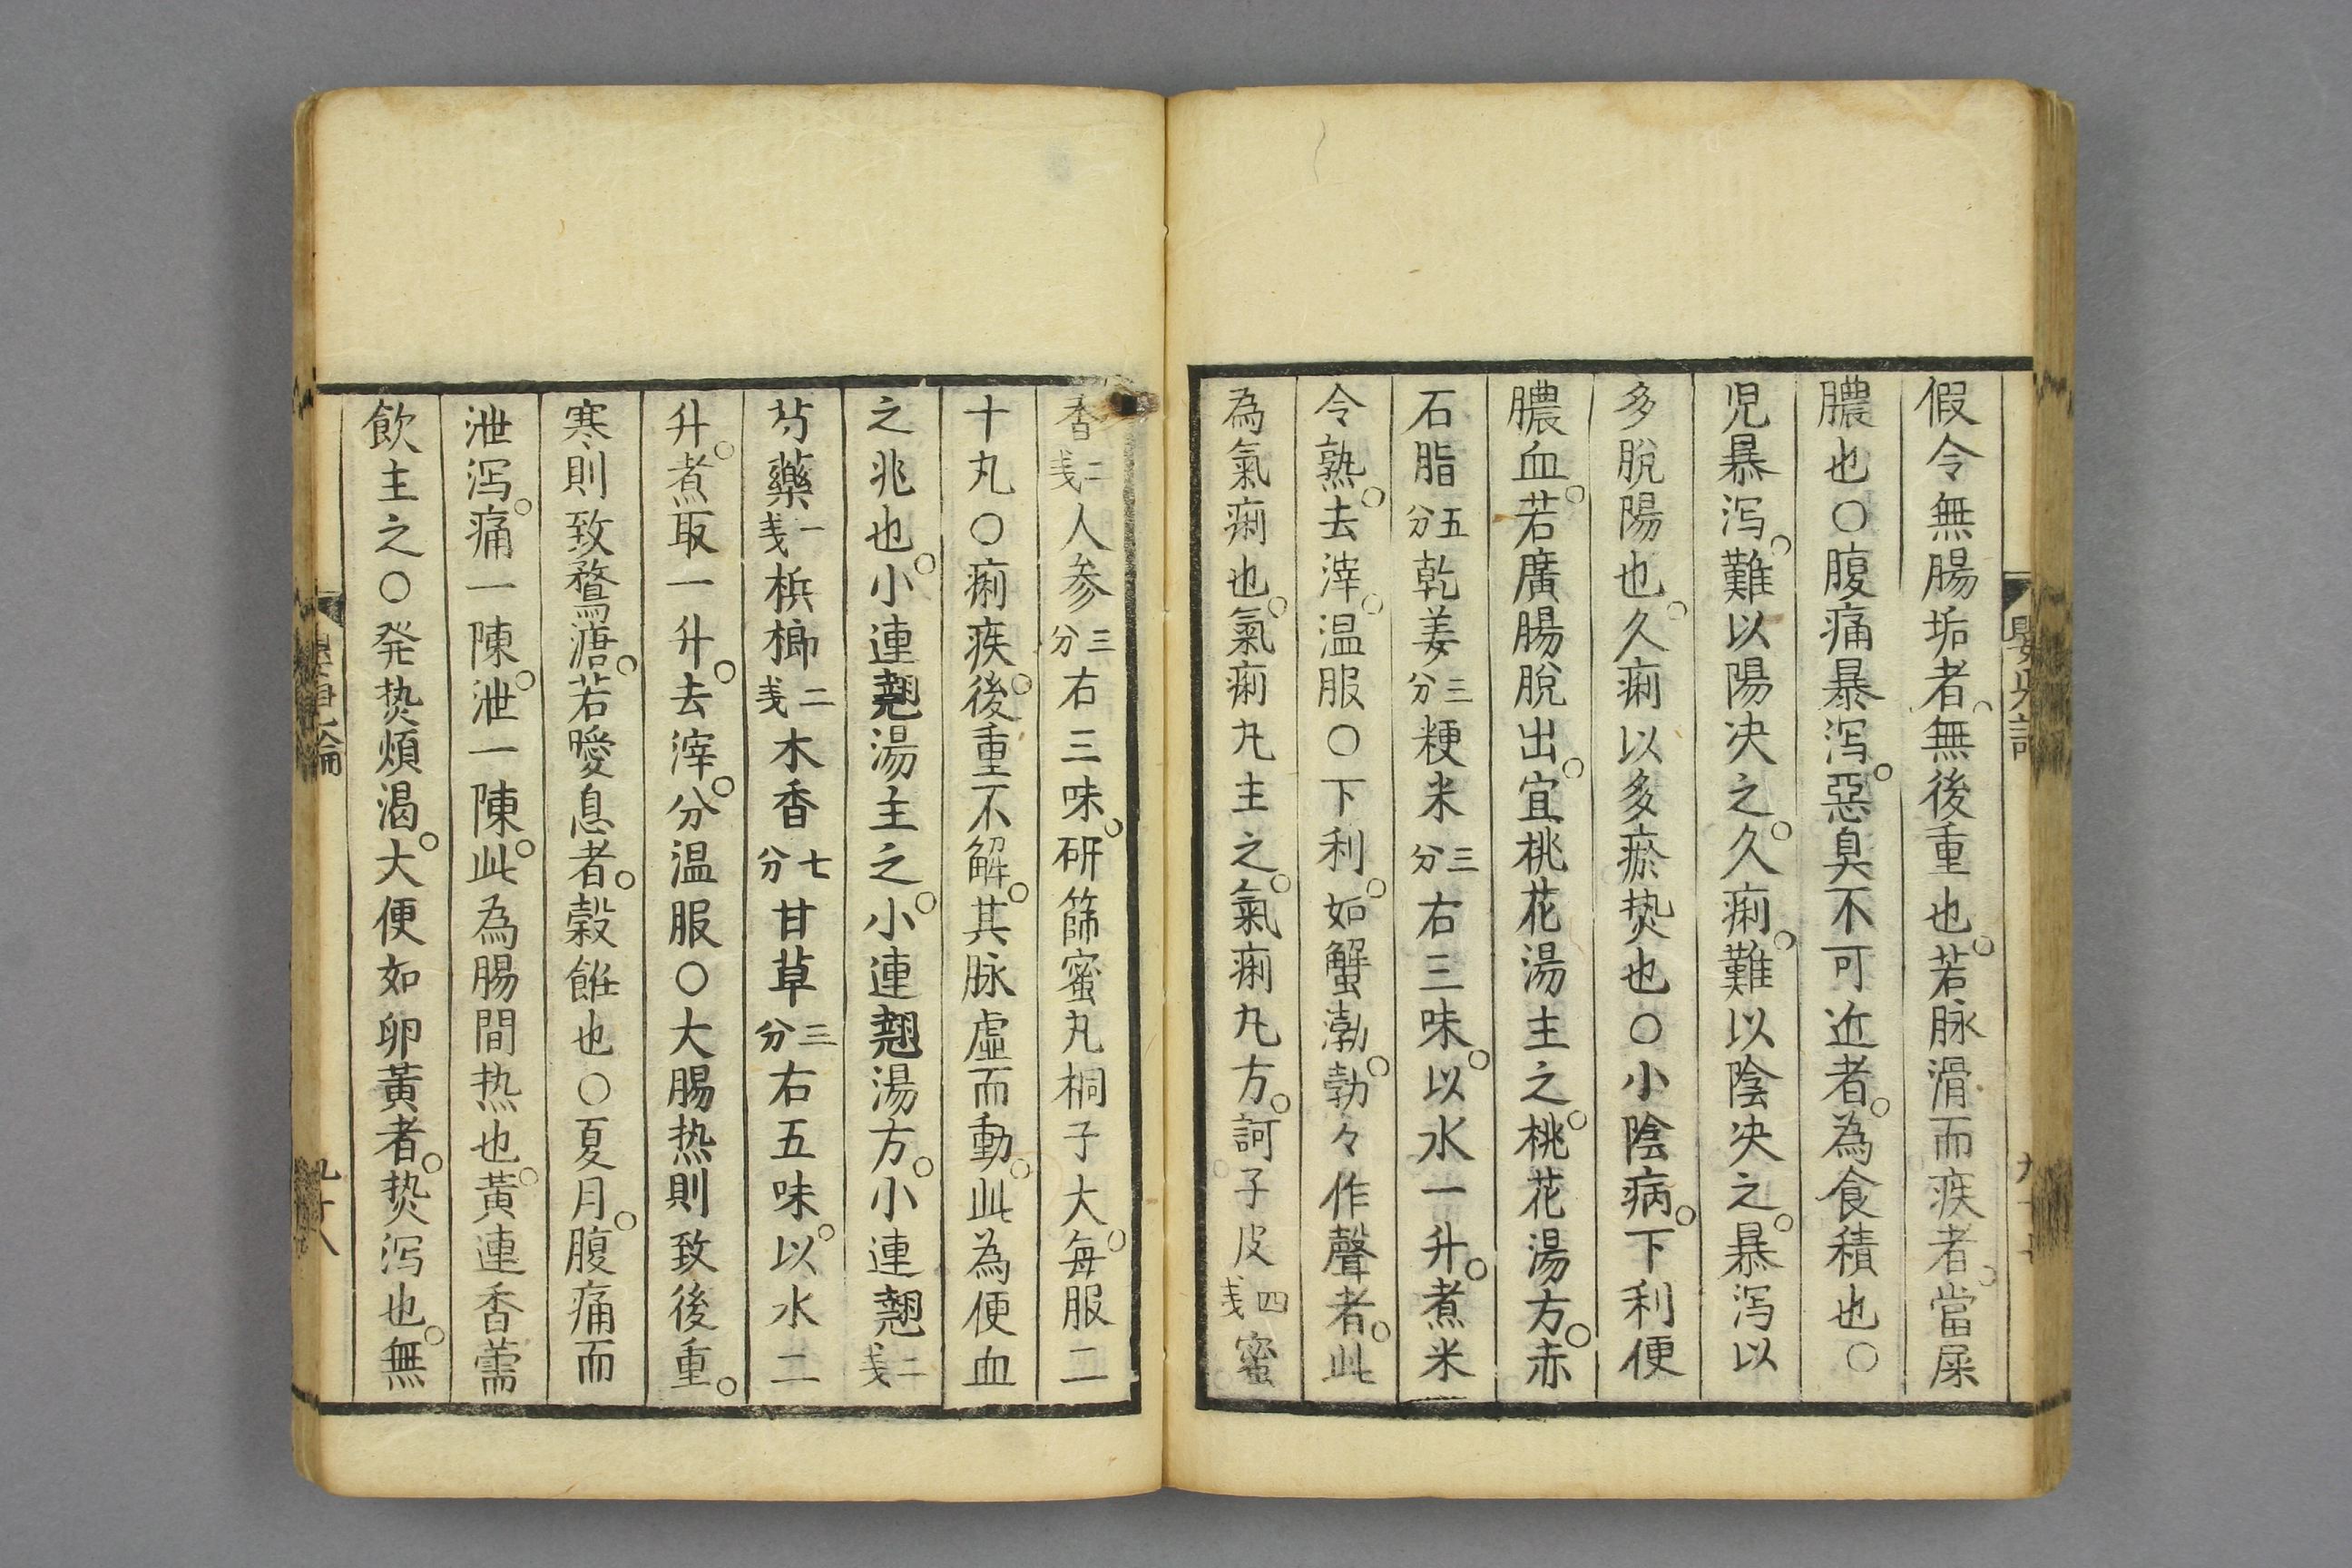 假令無腸垢者無後重也。若脉滑而疾者。當屎
膿也○腹痛暴泻。惡臭不可近者。為食積也○
児暴泻。難以陽决之。久痢。難以陰决之。暴泻以
多脫陽也。久痢以多瘀𤍠也○小陰病。下利便
膿血。若廣腸脫出。宜桃花湯主之。桃花湯方。赤
石脂五分乾姜三分粳米三分右三味。以水一升。煮米
令熟。去滓。温服○下利。如蟹渤。勃々作聲者。此
為氣痢也。氣痢丸主之。氣痢丸方。訶子皮四戋蜜
香二戋人参三分右三味。研篩蜜丸桐子大。每服二
十丸○痢疾。後重不解。其脉虛而動。此為便血
之兆也。小連翹湯主之。小連翹湯方。小連翹二戋
芍藥一戋梹榔二戋木香七分甘草三分右五味。以水二
升。煮取一升。去滓。分温服○大腸热則致後重。
寒則致鶩溏。若曖息者。穀餁也○夏月。腹痛而
泄泻。痛一陳。泄一陳。此為腸間热也。黃連香薷
飲主之○発𤍠煩渴。大便如卵黃者。𤍠泻也。無